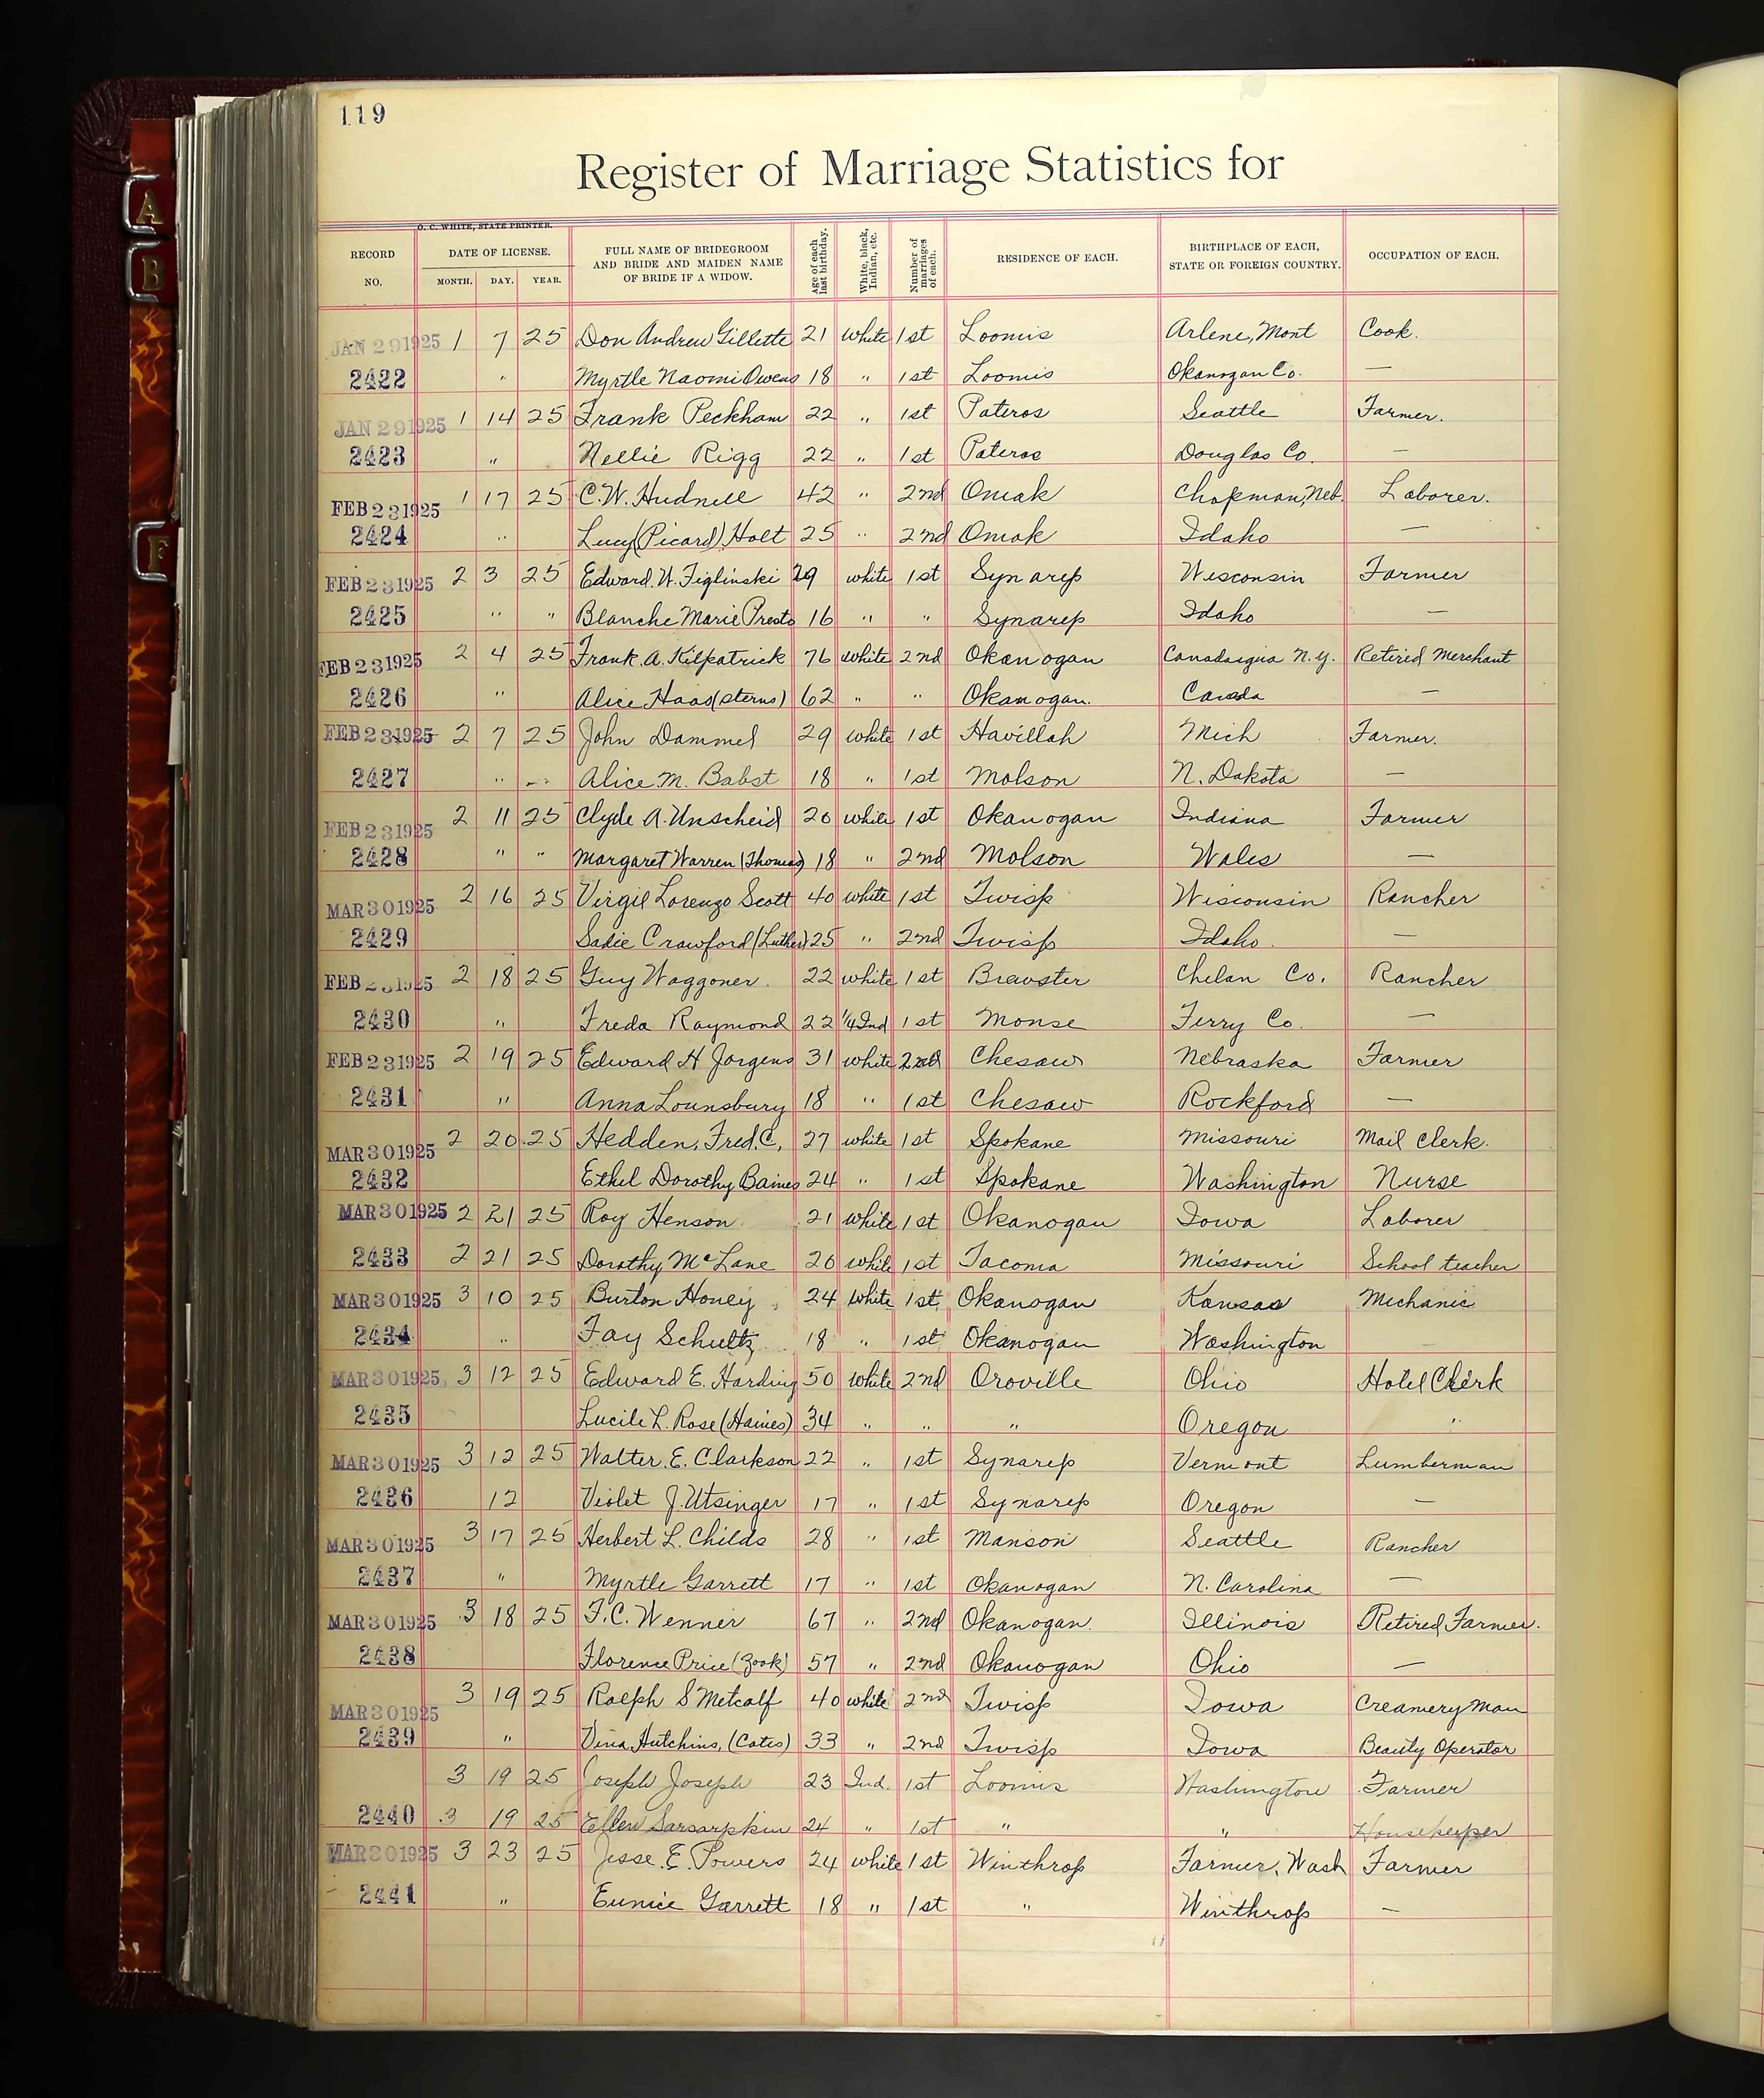 119
Register of Marriage Statistics for
O. C. WHITE, STATE PRINTER.
RECORD NO. DATE OF LICENSE. MONTH. DAY. YEAR. FULL NAME OF BRIDEGROOM AND BRIDE AND MAIDEN NAME OF BRIDE IF A WIDOW. Age of each last birthday. White, black, Indian, etc. Number of marriages of each. RESIDENCE OF EACH. BIRTHPLACE OF EACH, STATE OR FOREIGN COUNTRY. OCCUPATION OF EACH.
JAN 29 1925 1 7 25 Don Andrew Gillette 21 white 1st Loomis Arlene, Mont Cook.
2422 " Myrtle Naomi Owens 18 " 1st Loomis Okanogan Co. —
JAN 29 1925 1 14 25 Frank Peckham 22 " 1st Pateros Seattle Farmer.
2423 " Nellie Rigg 22 " 1st Pateros Douglas Co. —
FEB 23 1925 1 17 25 C.W. Hudnell 42 " 2nd Omak Chapman, Neb. Laborer.
2424 " Lucy (Picard) Holt 25 " 2nd Omak Idaho —
FEB 23 1925 2 3 25 Edward. W. Figlinski 29 white 1st Synarep Wisconsin Farmer
2425 " " Blanche Marie Presto 16 " " Synarep Idaho —
FEB 23 1925 2 4 25 Frank. A. Kilpatrick 76 white 2nd Okanogan Canadaigua N.Y. Retired Merchant
2426 " Alice Haas (Sterns) 62 " " Okanogan. Canada —
FEB 23 1925 2 7 25 John Dammel 29 white 1st Havillah Mich Farmer.
2427 " " Alice M. Babst 18 " 1st Molson N. Dakota —
FEB 23 1925 2 11 25 Clyde A. Unscheid 20 white 1st Okanogan Indiana Farmer
2428 " " Margaret Warren (Thomas) 18 " 2nd Molson Wales —
MAR 30 1925 2 16 25 Virgil Lorenzo Scott 40 white 1st Twisp Wisconsin Rancher
2429 Sadie Crawford (Luther) 25 " 2nd Twisp Idaho. —
FEB 23 1925 2 18 25 Guy Waggoner. 22 white 1st Brewster Chelan Co. Rancher
2430 " Freda Raymond 22 1/4 Ind 1st Monse Ferry Co. —
FEB 23 1925 2 19 25 Edward H Jorgens 31 white 2nd Chesaw Nebraska Farmer
2431 " Anna Lounsbury 18 " 1st Chesaw Rockford —
MAR 30 1925 2 20 25 Hedden, Fred. C, 27 white 1st Spokane Missouri Mail Clerk.
2432 Ethel Dorothy Baines 24 " 1st Spokane Washington Nurse
MAR 30 1925 2 21 25 Roy Henson 21 white 1st Okanogan Iowa Laborer
2433 2 21 25 Dorothy McLane 20 white 1st Tacoma Missouri School teacher
MAR 30 1925 3 10 25 Burton Honey 24 white 1st Okanogan Kansas Mechanic
2434 " Fay Schultz 18 " 1st Okanogan Washington
MAR 30 1925 3 12 25 Edward E. Harding 50 white 2nd Oroville Ohio Hotel Clerk
2435 Lucile L. Rose (Haines) 34 " " " Oregon "
MAR 30 1925 3 12 25 Walter. E. Clarkson 22 " 1st Synarep Vermont Lumberman
2436 12 Violet J. Utsinger 17 " 1st Synarep Oregon —
MAR 30 1925 3 17 25 Herbert L. Childs 28 " 1st Manson Seattle Rancher
2437 " Myrtle Garrett 17 " 1st Okanogan N. Carolina —
MAR 30 1925 3 18 25 F.C. Wenner 67 " 2nd Okanogan Illinois Retired Farmer.
2438 Florence Price (Zook) 57 " 2nd Okanogan Ohio —
MAR 30 1925 3 19 25 Ralph S Metcalf 40 white 2nd Twisp Iowa Creamery Man
2439 " Vina Hutchins, (Cates) 33 " 2nd Twisp Iowa Beauty Operator
3 19 25 Joseph Joseph 23 Ind. 1st Loomis Washington Farmer
2440 3 19 25 Ellen Sarsarpkin 24 " 1st " " Housekeeper
MAR 30 1925 3 23 25 Jesse. E. Powers 24 white 1st Winthrop Farmer, Wash Farmer
2441 " Eunice Garrett 18 " 1st " Winthrop —
A
B
F